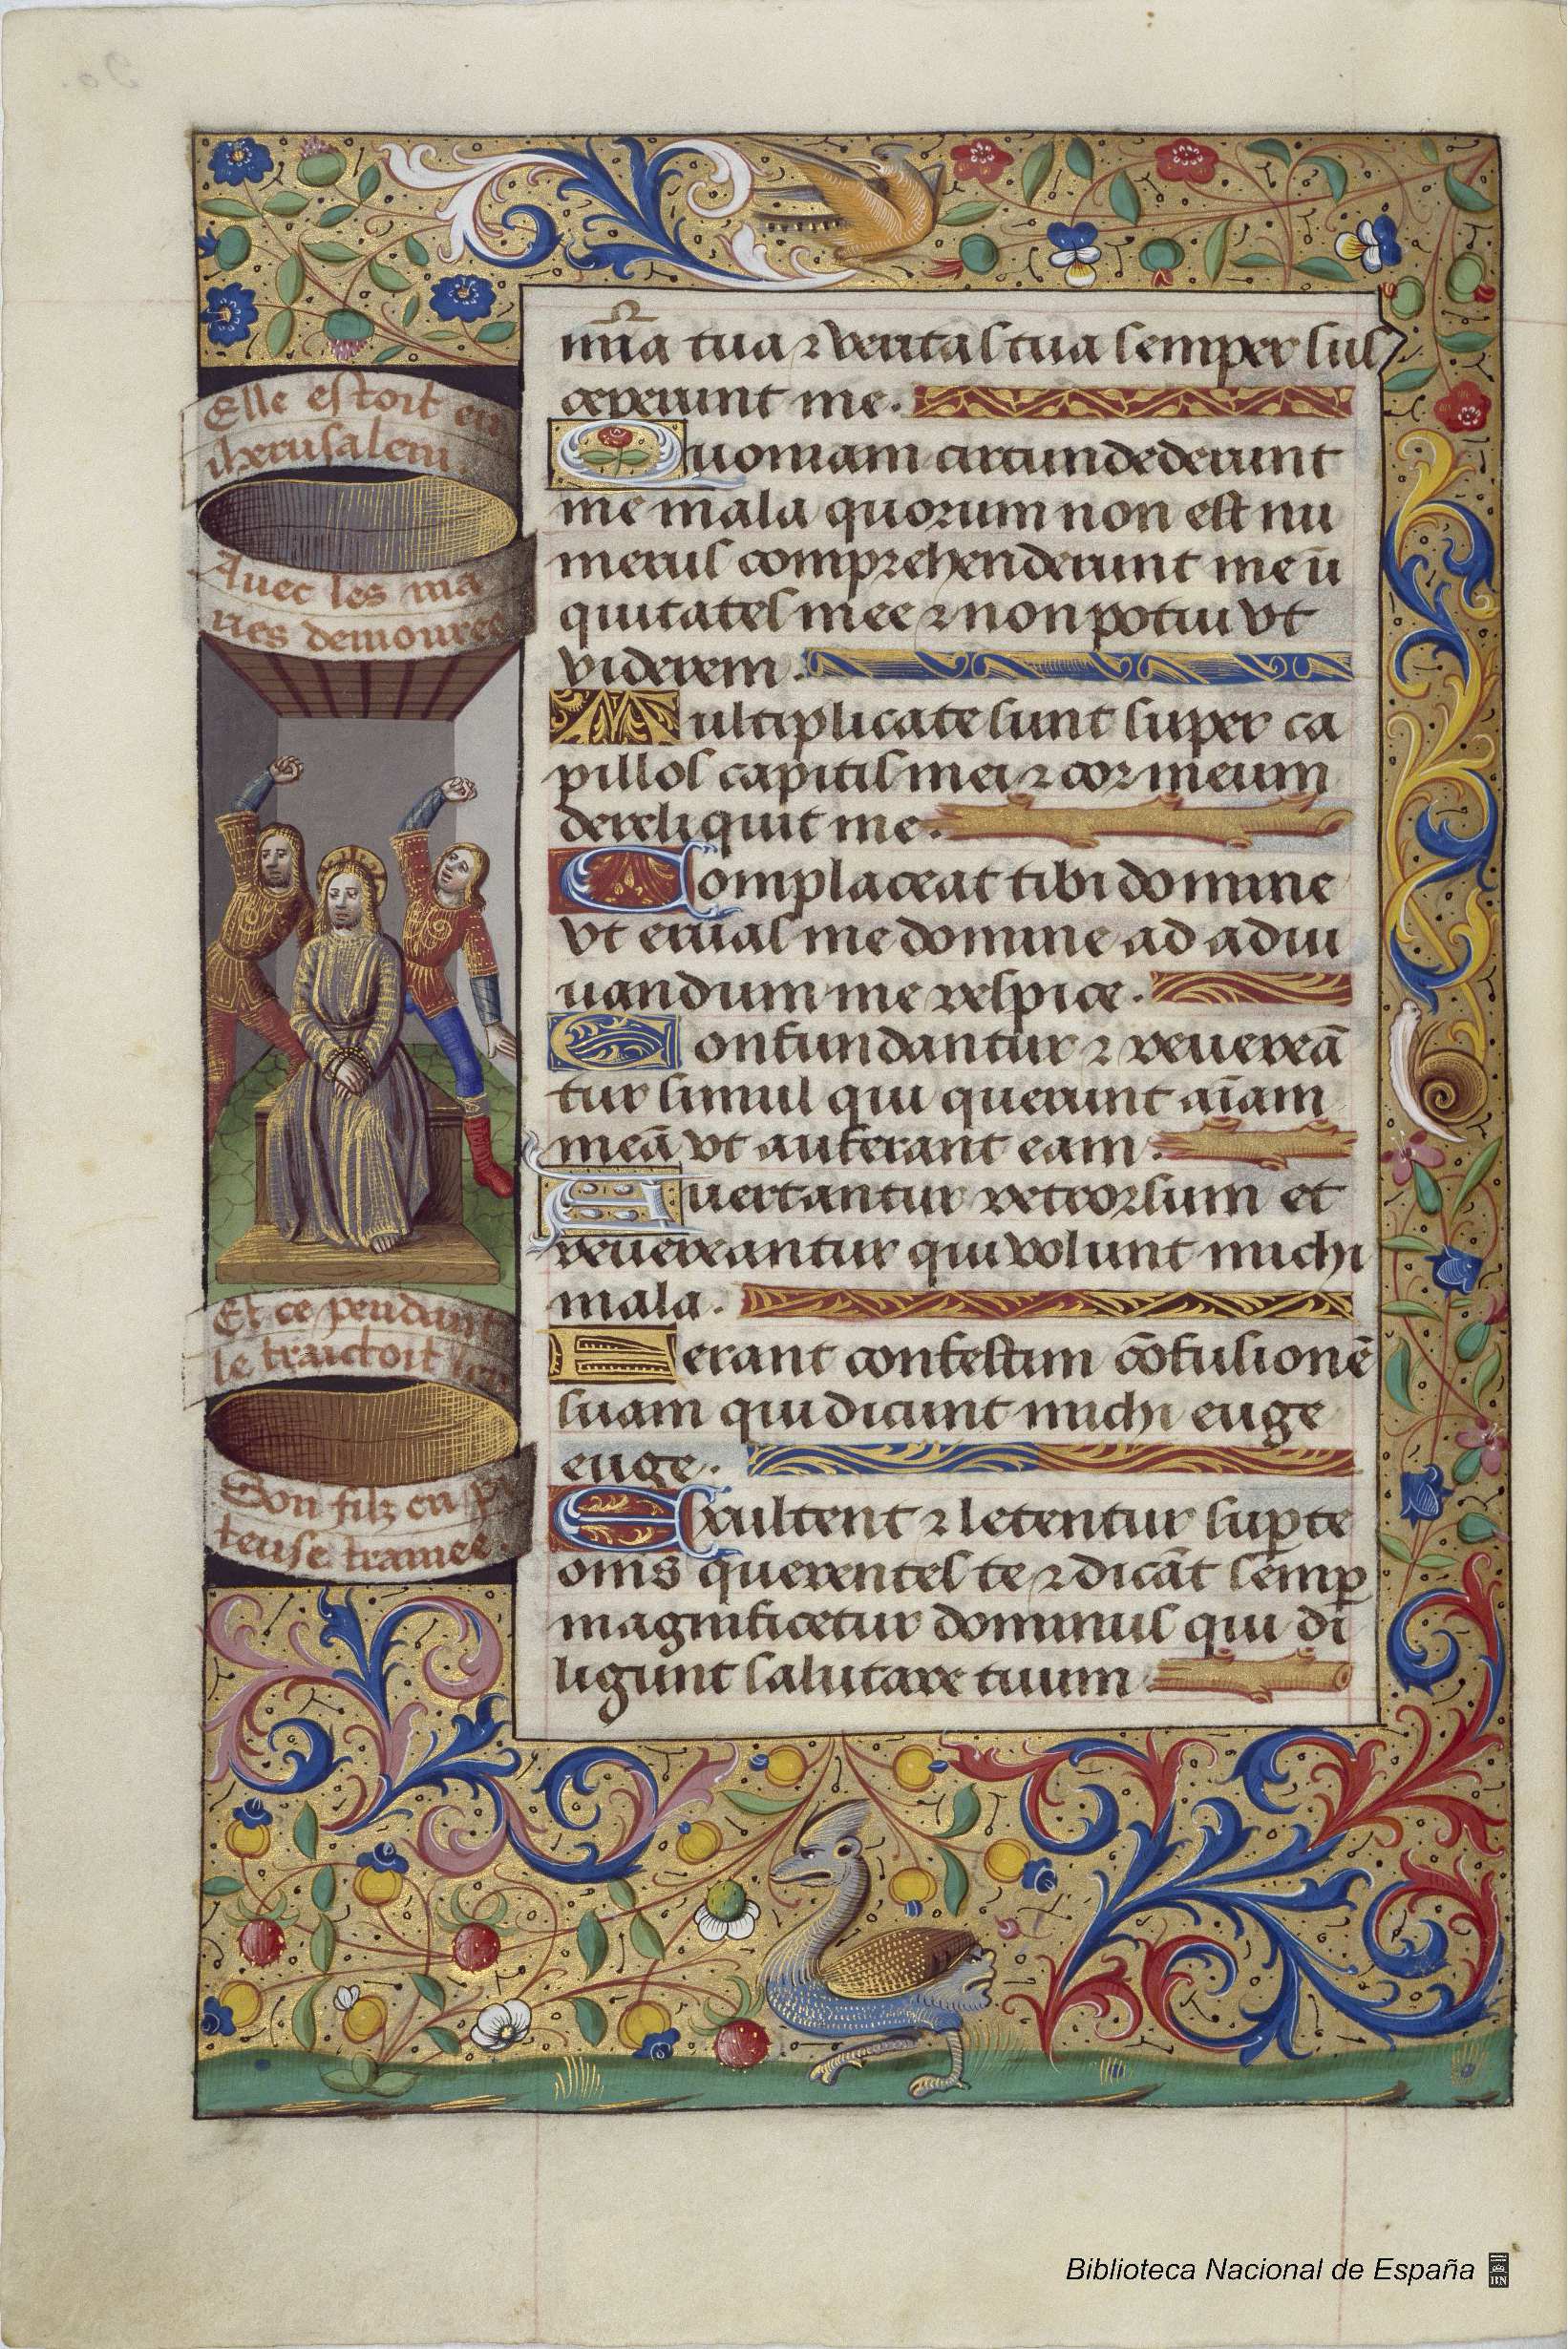 Elle estoit en
iherusalem.
Avec les ma
ries demouree
Et ce pendant
le traictoit len
Son filz en pi
teuse tramee.
mīa tua ⁊ veritas tua semper sus
ceperunt me.
Quoniam circundederunt
me mala quorum non est nu
merus comprehenderunt me ii
quitates mee ⁊ non potui vt
viderem.
Multiplicate sunt super ca
pillos capitis mei ⁊ cor meum
dereliquit me.
Complaceat tibi domine
vt eruas me domine ad adiu
uandum me respice.
Confundantur ⁊ reuereā
tur simul qui querunt aīam
meā vt auferant eam.
Auertantur retrorsum et
reuereantur qui volunt michi
mala.
Ferant confestim cōfusionē
suam qui dicunt michi euge
euge.
Exultent ⁊ letentur suꝑ te
om̄s querentes te ⁊ dicāt semꝑ
magnificetur dominus qui di
ligunt salutare tuum
Biblioteca Nacional de España